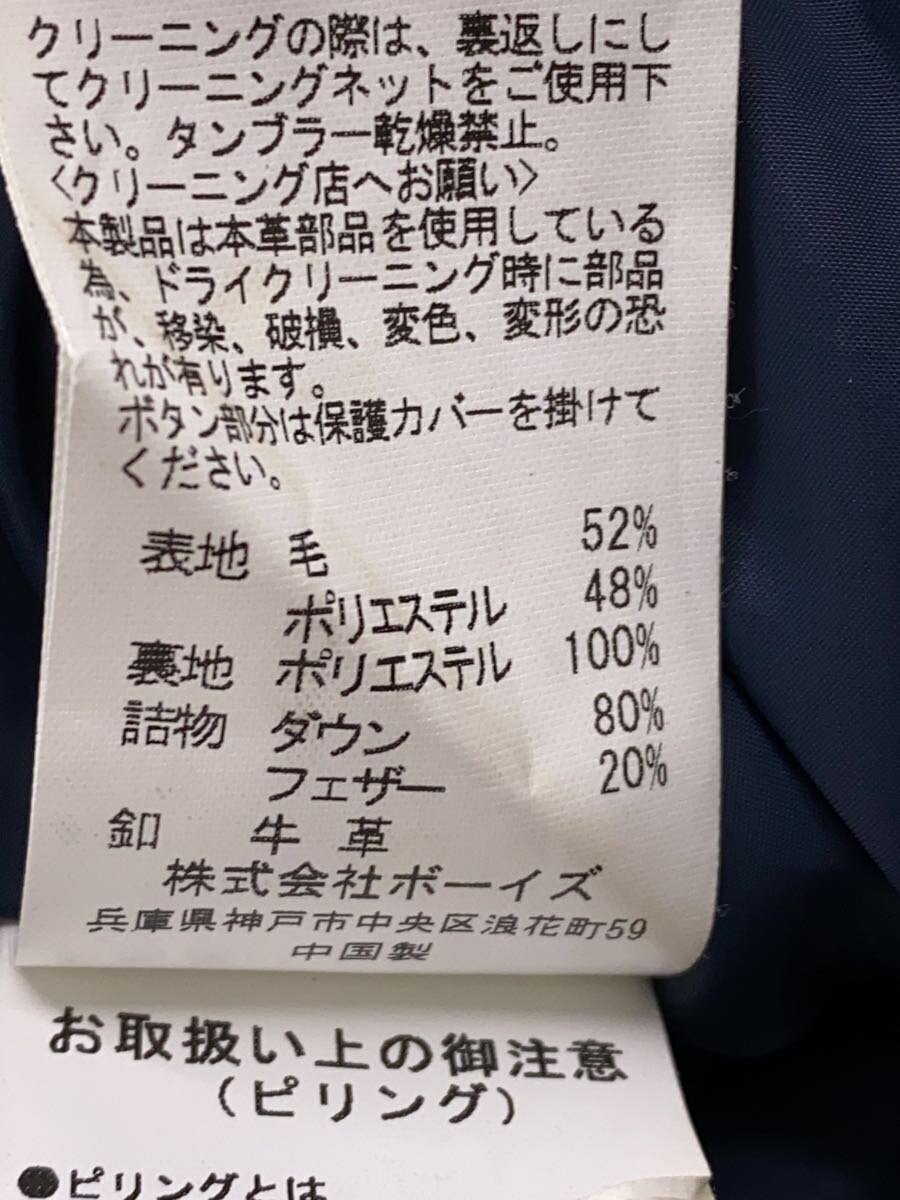 クリーニングの際は、裏返しにし
てクリーニングネットをご使用下
さい。タンブラー乾燥禁止。
〈クリーニング店へお願い〉
本製品は本革部品を使用している
為、ドライクリーニング時に部品
が、移染、破損、変色、変形の恐
れが有ります。
ボタン部分は保護カバーを掛けて
ください。
表地 毛 52%
ポリエステル 48%
裏地 ポリエステル 100%
詰物 ダウン 80%
フェザー 20%
釦 牛革
株式会社ボーイズ
兵庫県神戸市中央区浪花町59
中国製
お取扱い上の御注意
(ピリング)
●ピリングとは